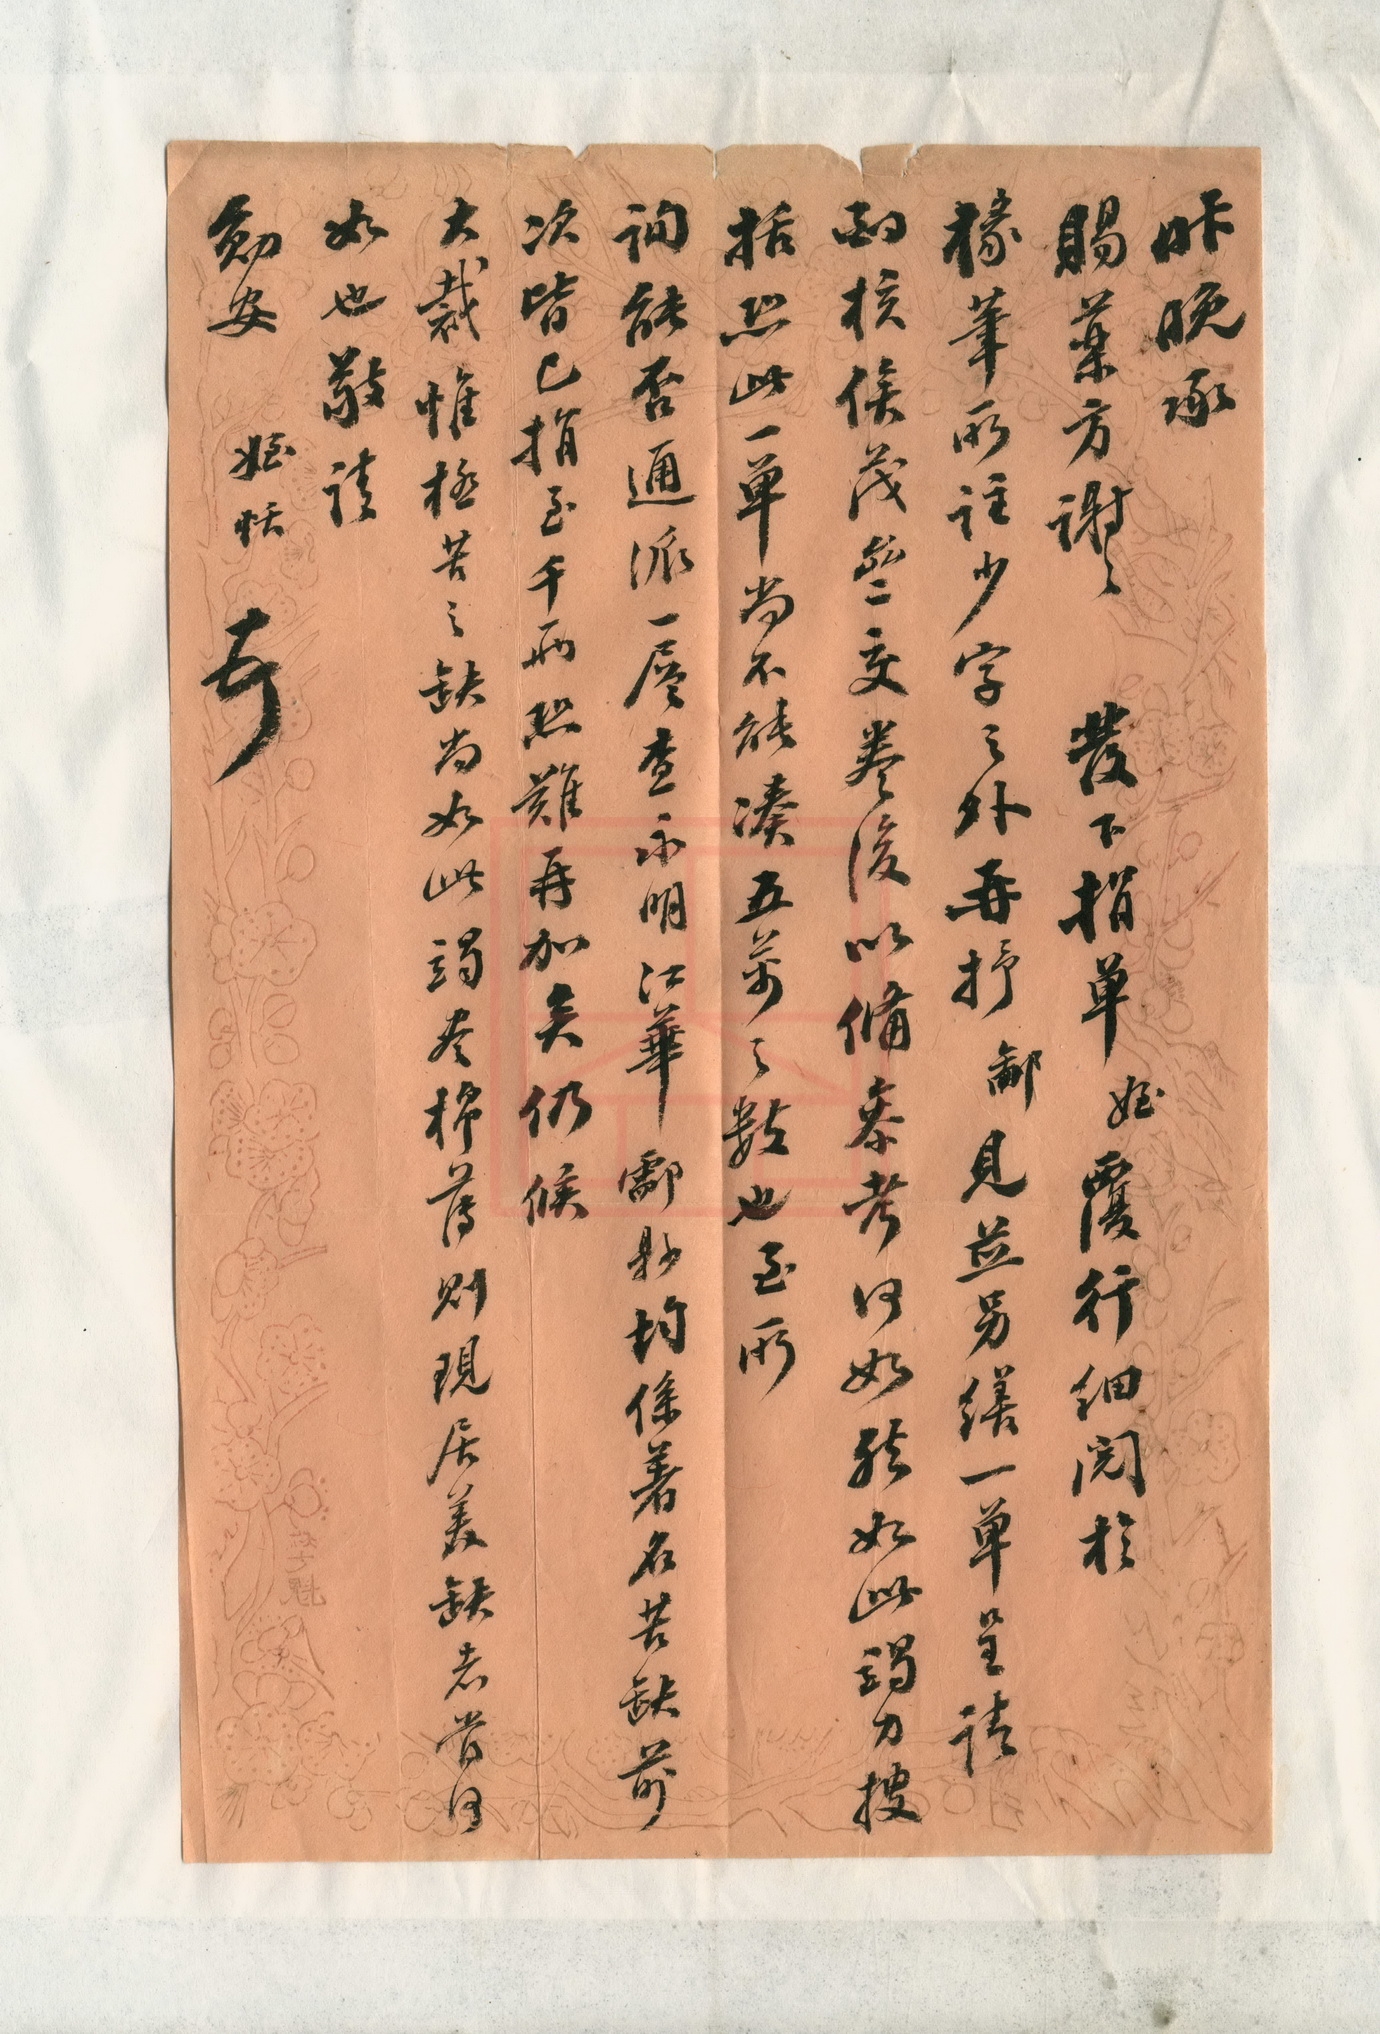 昨晚承
賜藥方謝謝 發下捐單姪覆行細閱於
椽筆所註少字之外再抒鄙見並另繕一單呈請
酌核俟茂壑交卷後以備參考何如然如此竭力搜
括照此一單尚不能湊五萬之數也至所
詢能否通派一層查永明江華酃縣均係著名苦缺前
次皆已捐至千兩恐難再加矣仍候
大裁惟極苦之缺尚如此竭盡棉薄則現居美缺者當何
如也敬請
勛安 姪恬
松七魁